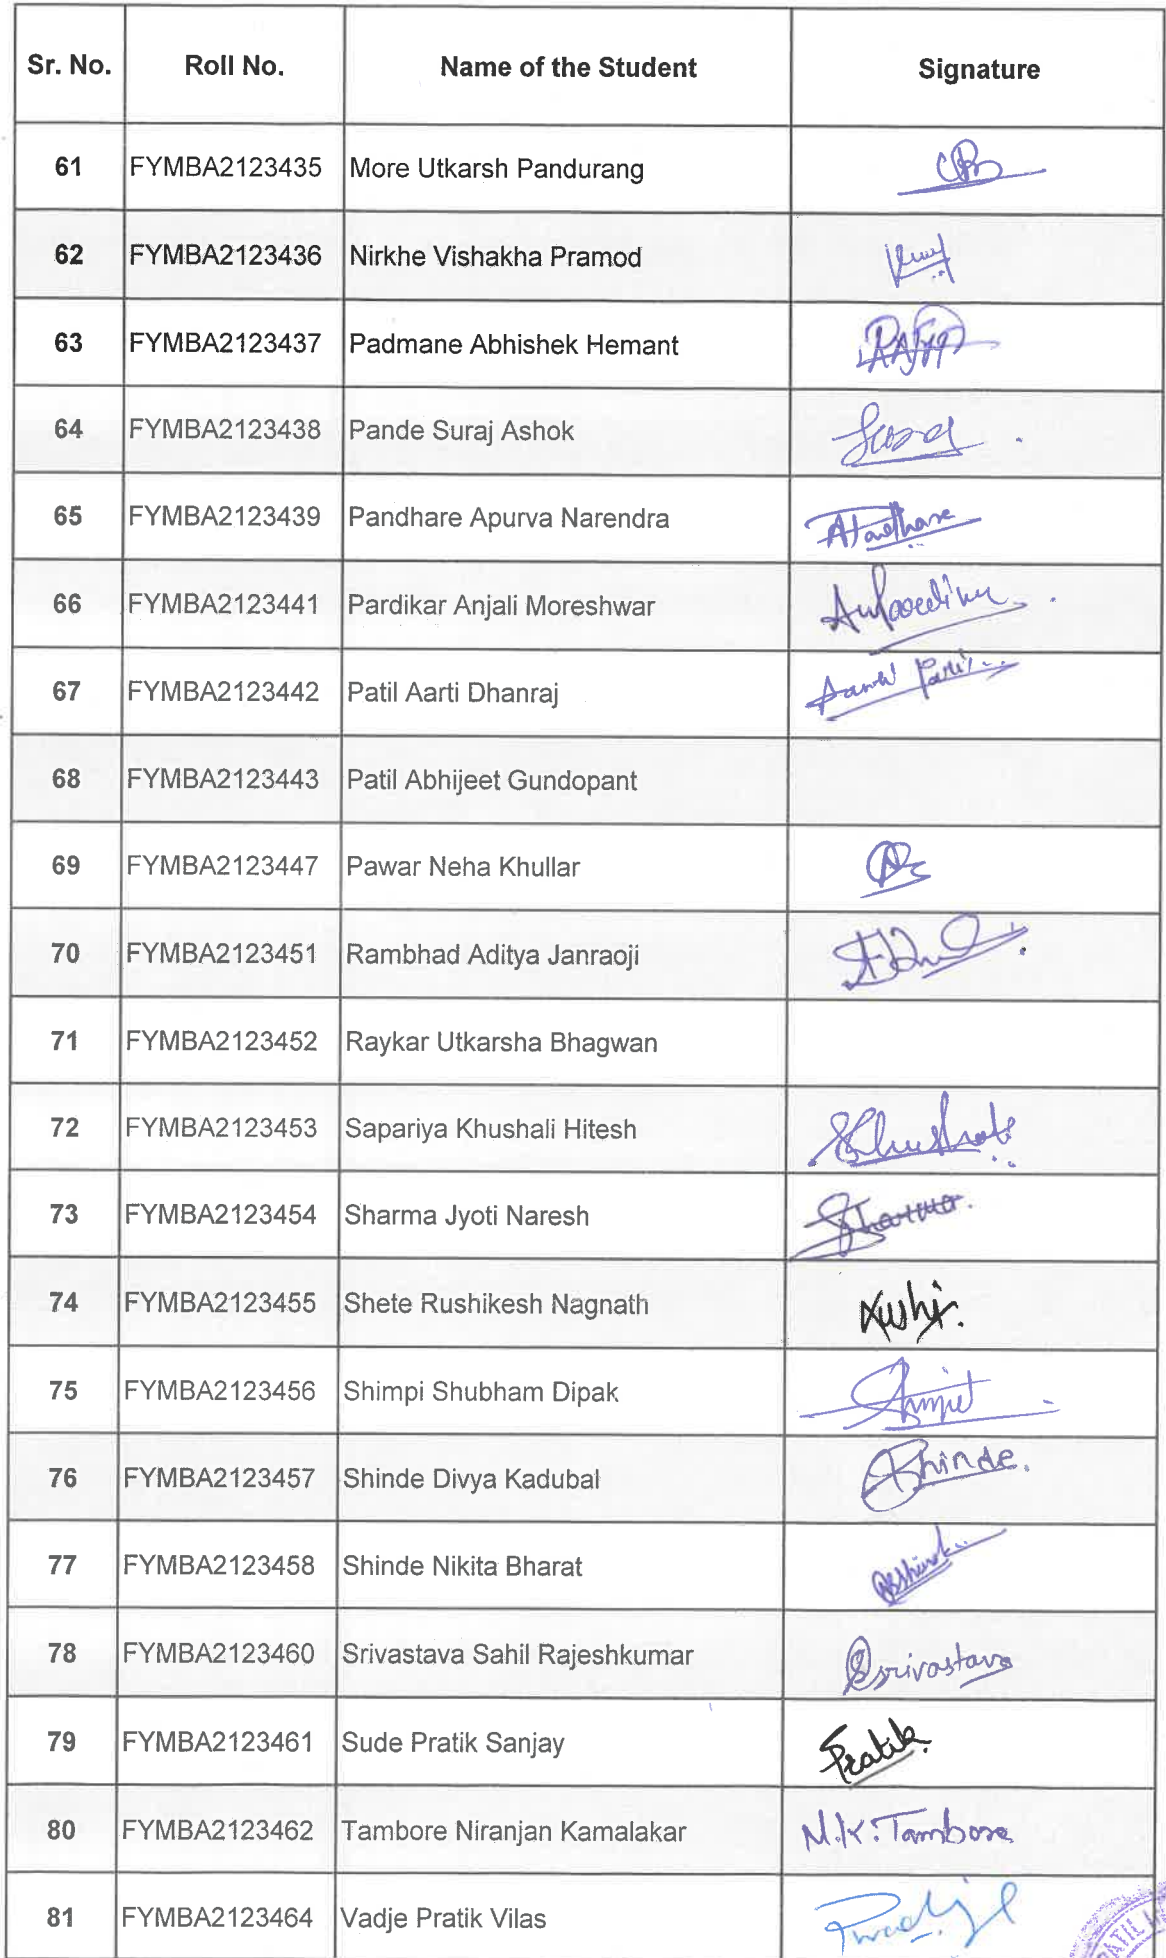 Sr. No. Roll No. Name of the Student Signature
61 FYMBA2123435 More Utkarsh Pandurang
62 FYMBA2123436 Nirkhe Vishakha Pramod
63 FYMBA2123437 Padmane Abhishek Hemant
64 FYMBA2123438 Pande Suraj Ashok
65 FYMBA2123439 Pandhare Apurva Narendra
66 FYMBA2123441 Pardikar Anjali Moreshwar
67 FYMBA2123442 Patil Aarti Dhanraj
68 FYMBA2123443 Patil Abhijeet Gundopant
69 FYMBA2123447 Pawar Neha Khullar
70 FYMBA2123451 Rambhad Aditya Janraoji
71 FYMBA2123452 Raykar Utkarsha Bhagwan
72 FYMBA2123453 Sapariya Khushali Hitesh
73 FYMBA2123454 Sharma Jyoti Naresh
74 FYMBA2123455 Shete Rushikesh Nagnath
75 FYMBA2123456 Shimpi Shubham Dipak
76 FYMBA2123457 Shinde Divya Kadubal Shinde.
77 FYMBA2123458 Shinde Nikita Bharat
78 FYMBA2123460 Srivastava Sahil Rajeshkumar Srivastava
79 FYMBA2123461 Sude Pratik Sanjay Pratik.
80 FYMBA2123462 Tambore Niranjan Kamalakar N.K. Tambore
81 FYMBA2123464 Vadje Pratik Vilas